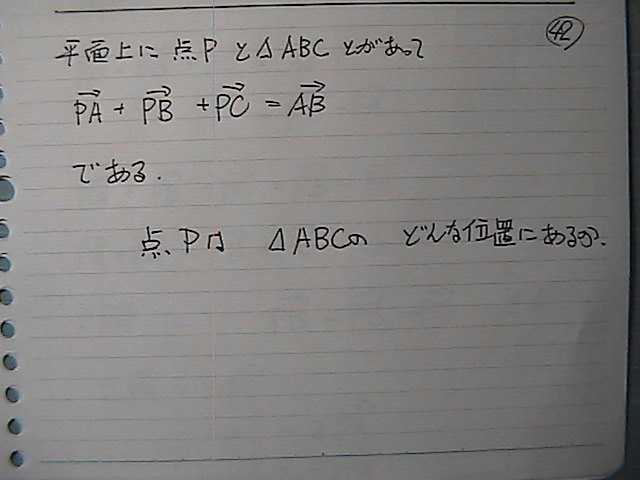 平面上に点Pと△ABCとがあって
㊷
PA→ + PB→ + PC→ = AB→
である.
点Pは △ABCの どんな位置にあるか.